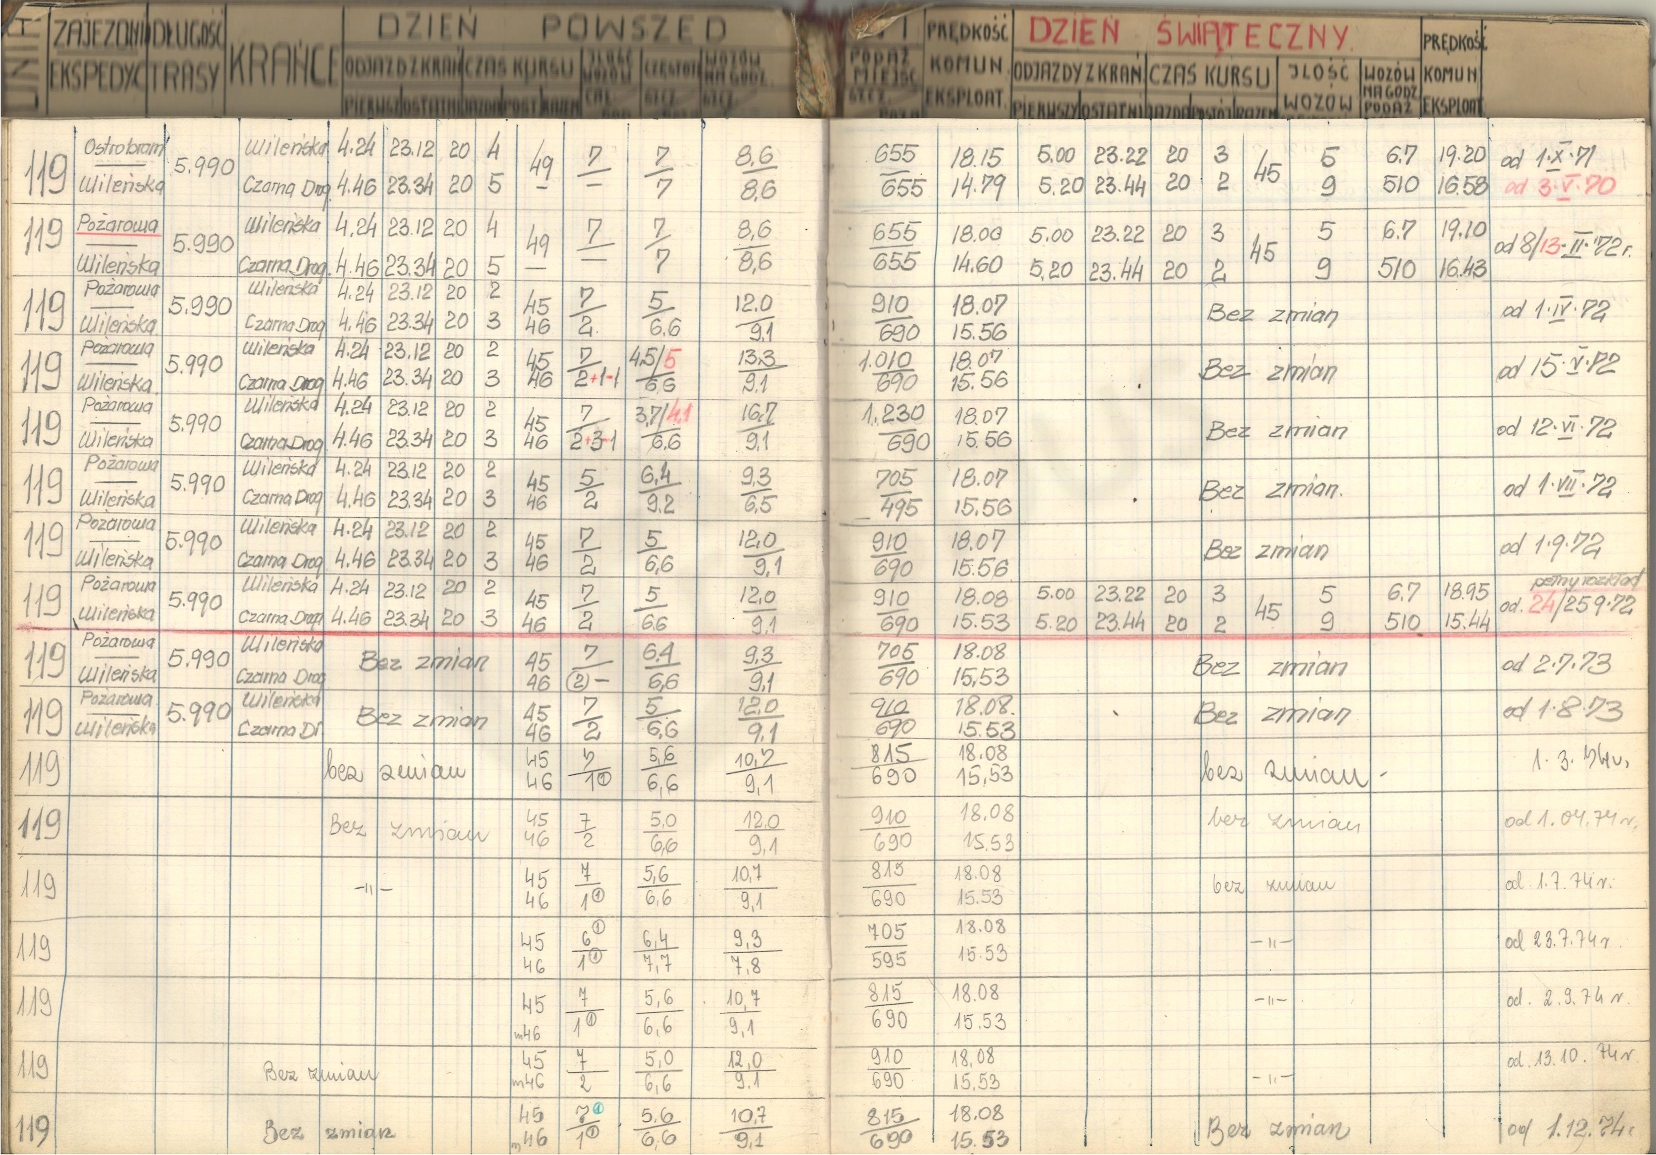 LINIA ZAJEZDNI DŁUGOŚĆ KRAŃCE DZIEŃ POWSZED PRĘDKOŚĆ DZIEŃ ŚWIĄTECZNY PRĘDKOŚĆ
EKSPEDYC TRASY ODJAZDZKRAŃ CZAS KURSU JLOŚĆ WOZÓW CZĘSTOT WOZÓW NA GODZ. PODAŻ MIEJSC KOMUN. ODJAZDY Z KRAŃ. CZAS KURSU JLOŚĆ WOZÓW NA GODZ KOMUN.
PIERWSZY OSTATNI JAZDA POST RAZEM SZCZ SZCZ EKSPLOAT. PIERWSZY OSTATNI JAZDA POSTÓJ RAZEM WOZÓW PODAŻ EKSPLOAT
119 Ostrobram 5.990 Wileńska 4.24 23.12 20 4 49 7 7 8,6 655 18.15 5.00 23.22 20 3 45 5 6.7 19.20 od 1·X·71
Wileńska Czarna Drog 4.46 23.34 20 5 — — 7 8,6 655 14.79 5.20 23.44 20 2 9 510 16.58 od 3·V·70
119 Pożarowa 5.990 Wileńska 4.24 23.12 20 4 49 7 7 8,6 655 18.00 5.00 23.22 20 3 45 5 6.7 19.10 od 8/13·II·72r.
Wileńska Czarna Drog. 4.46 23.34 20 5 — — 7 8,6 655 14.60 5.20 23.44 20 2 9 510 16.43
119 Pożarowa 5.990 Wileńska 4.24 23.12 20 2 45 7 5 12.0 910 18.07 Bez zmian od 1·IV·72
Wileńska Czarna Drog 4.46 23.34 20 3 46 2. 6,6 9,1 690 15.56
119 Pożarowa 5.990 Wileńska 4.24 23.12 20 2 45 7 4,5/5 13,3 1.010 18.07 Bez zmian od 15·V·72
Wileńska Czarna Drog 4.46 23.34 20 3 46 2+1-1 6,6 9,1 690 15.56
119 Pożarowa 5.990 Wileńska 4.24 23.12 20 2 45 7 3,7/4,1 16,7 1.230 18.07 Bez zmian od 12·VI·72
Wileńska Czarna Drog 4.46 23.34 20 3 46 2+3-1 6.6 9,1 690 15.56
119 Pożarowa 5.990 Wileńska 4.24 23.12 20 2 45 5 6,4 9,3 705 18.07 Bez zmian. od 1·VII·72
Wileńska Czarna Drog 4.46 23.34 20 3 46 2 9,2 6,5 495 15.56
119 Pożarowa 5.990 Wileńska 4.24 23.12 20 2 45 7 5 12,0 910 18.07 Bez zmian od 1·9·72
Wileńska Czarna Drog 4.46 23.34 20 3 46 2 6,6 9,1 690 15.56
119 Pożarowa 5.990 Wileńska 4.24 23.12 20 2 45 7 5 12,0 910 18.08 5.00 23.22 20 3 45 5 6.7 18.95 pełny rozkład
Wileńska Czarna Drog 4.46 23.34 20 3 46 2 6,6 9,1 690 15.53 5.20 23.44 20 2 9 510 15.44 od. 24/25 9·72
119 Pożarowa 5.990 Wileńska Bez zmian 45 7 6,4 9,3 705 18.08 Bez zmian od 2·7·73
Wileńska Czarna Drog 46 (2) — 6,6 9,1 690 15,53
119 Pożarowa 5.990 Wileńska Bez zmian 45 7 5 12,0 910 18.08. Bez zmian od 1·8·73
Wileńska Czarna Dr. 46 2 6,6 9,1 690 15.53
119 bez zmian 45 7 5,6 10,7 815 18.08 bez zmian - 1. 3. 74r,
46 1① 6,6 9,1 690 15,53
119 Bez zmian 45 7 5,0 12,0 910 18.08 bez zmian od 1.04.74r.
46 2 6,6 9,1 690 15.53
119 -II- 45 7 5,6 10,7 815 18.08 bez zmian od. 1.7.74r.
46 1① 6,6 9,1 690 15.53
119 45 6① 6,4 9,3 705 18.08 -II- od 23.7.74r.
46 1① 7,7 7,8 595 15.53
119 45 7 5,6 10,7 815 18.08 -II- od. 2.9.74 r.
m46 1① 6,6 9,1 690 15.53
119 Bez zmian 45 7 5,0 12,0 910 18,08 -II- od. 13.10. 74r.
m46 2 6,6 9.1 690 15.53
119 Bez zmian 45 7① 5,6 10,7 815 18.08 Bez zmian od 1.12.74r
m46 1① 6,6 9,1 690 15.53